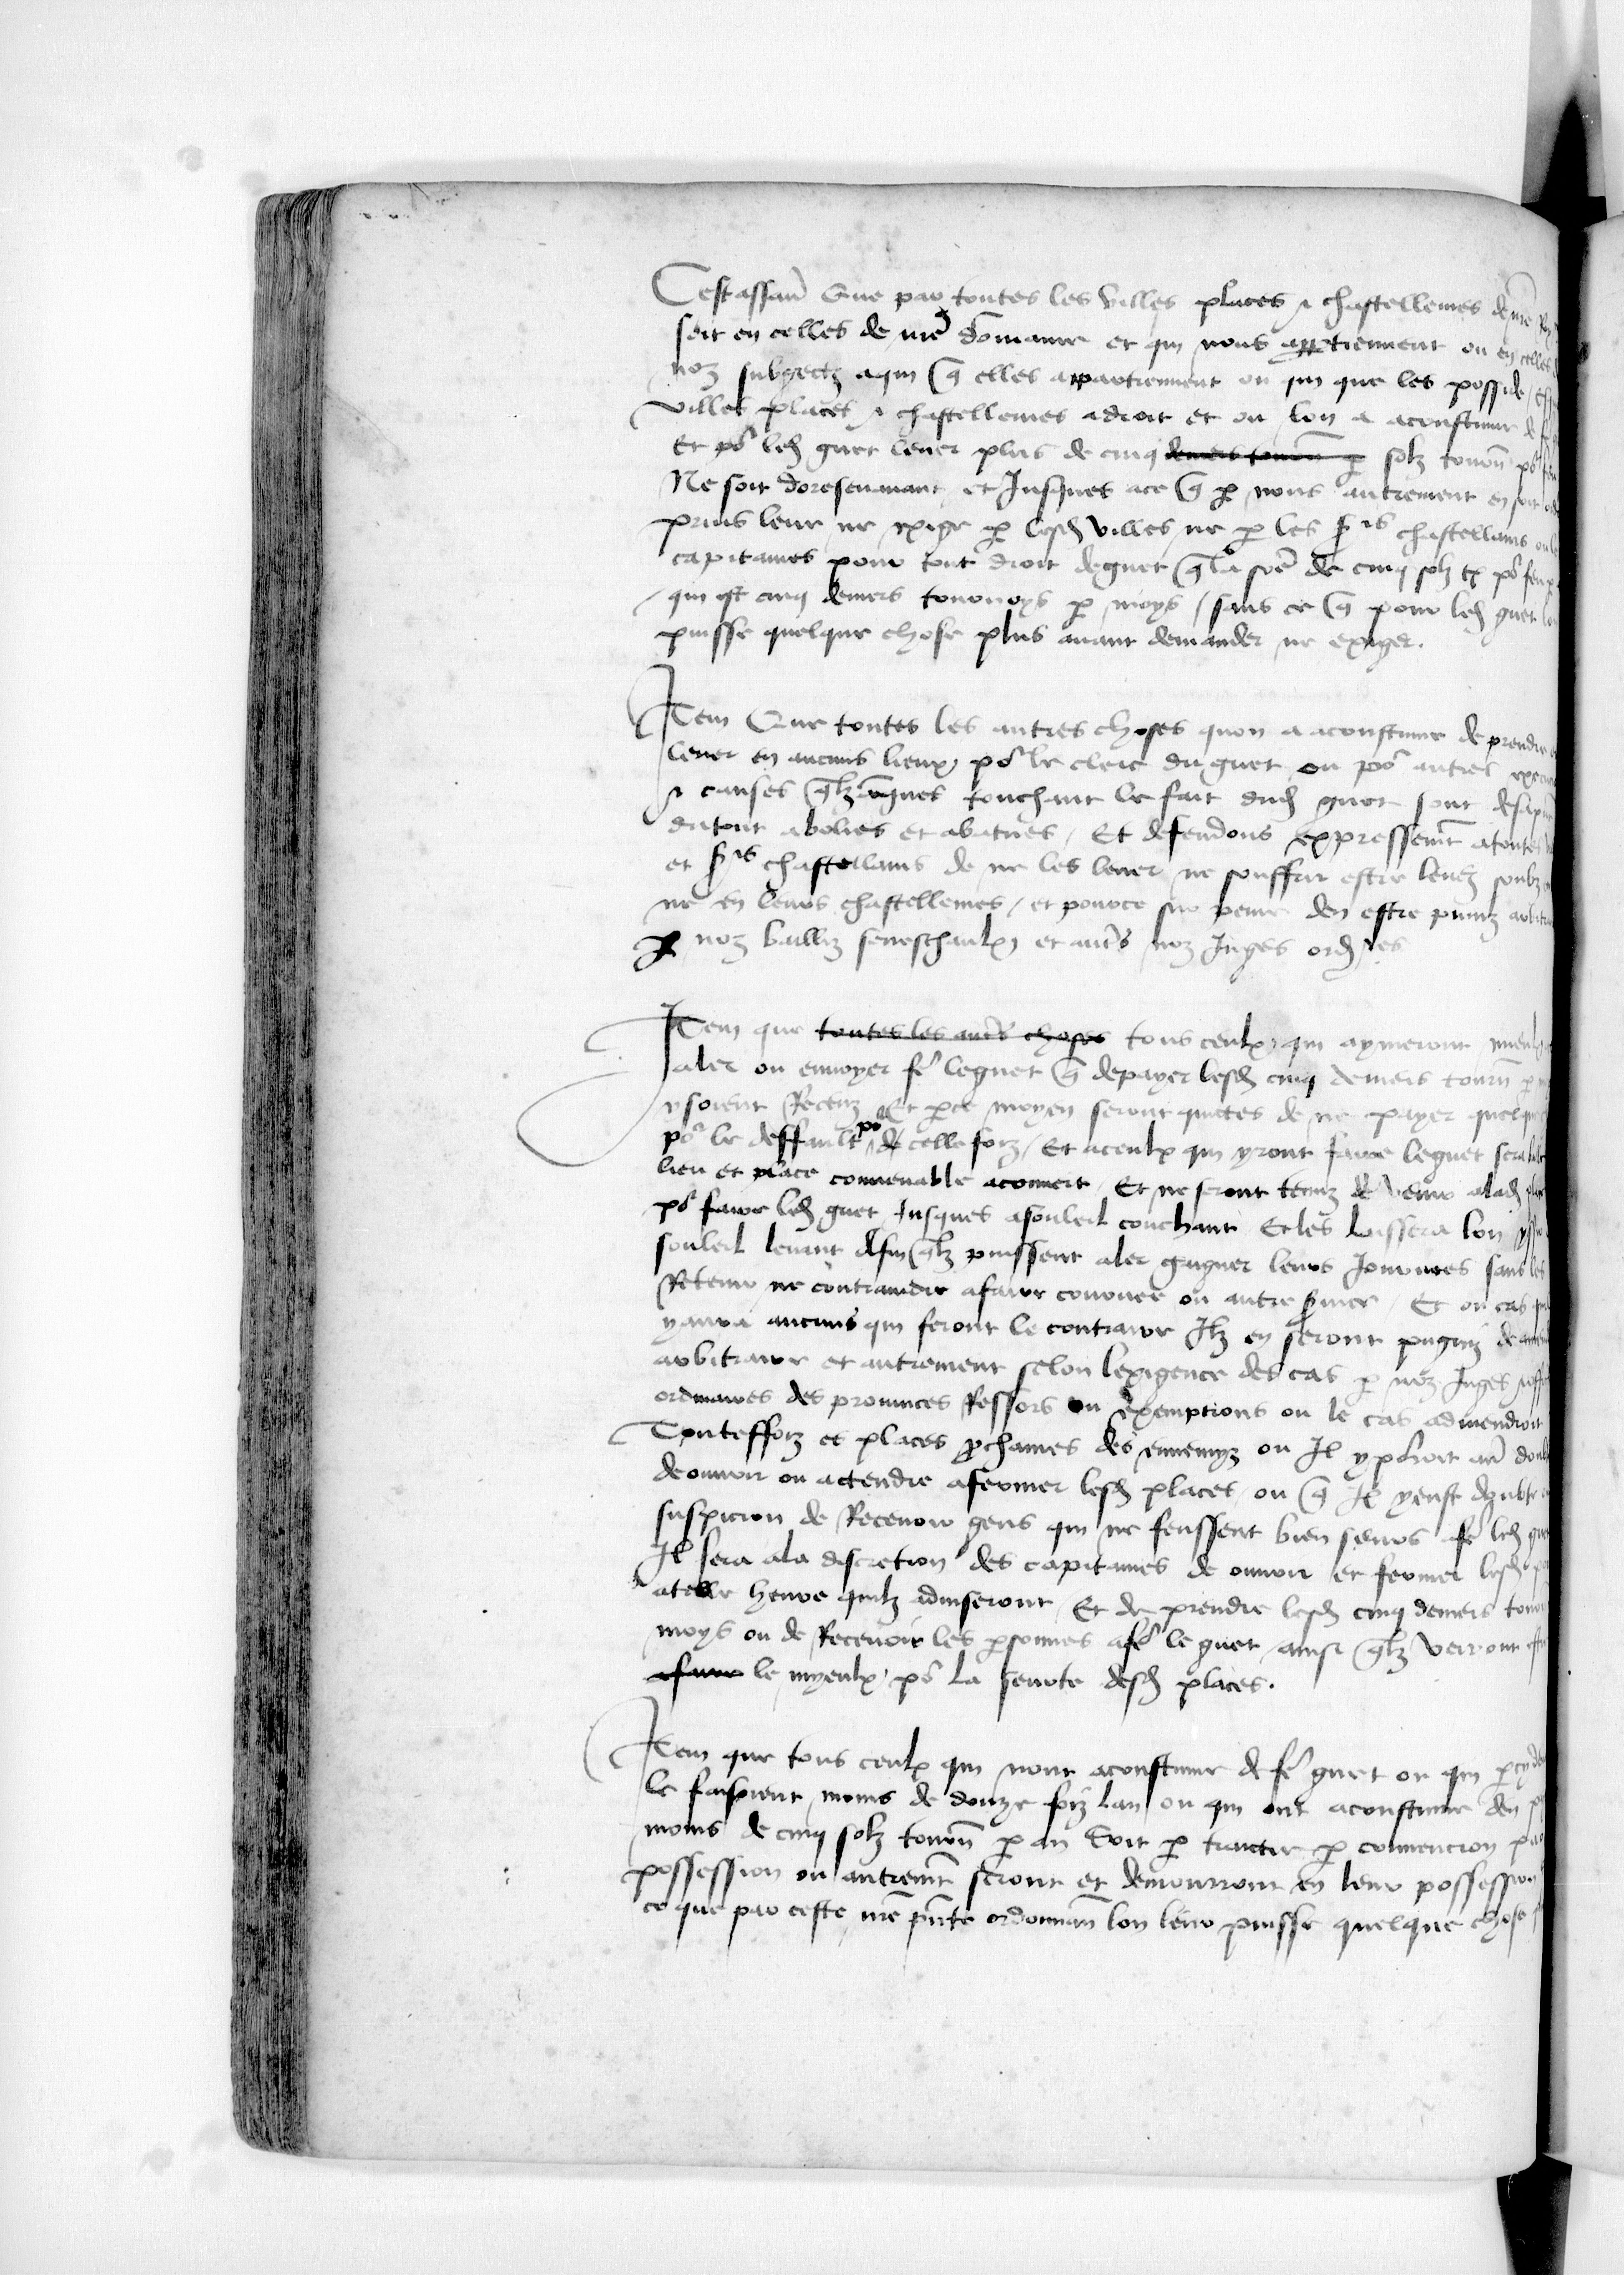 Cestassavr Que par toutes les villes places & chastellenies de nre Roy
soit en celles de nre dommaine et qui nous apptiennent ou en celles
noz subgectz aqui q elles appartiennent ou qui que les posside
villes places & chastellenies a droit et ou lon a acoustume de
Et pr led guet lever plus de cinq deniers tourn p solz tourn pr
Ne soit doresenavant et Jusques ace q p nous autrement en soit
prins leve ne exige p lesd villes ne p les srs chastellains ou
capitaines pour tout droit deguet q la sōe de cinq solz t pr feu
qui est cinq deniers tournoys p moys / sans ce q pour led guet lon
puisse quelque chose plus avant demander ne exiger.
Item Que toutes les autres choses quon a acoustume de prendre
lever en aucuns lieux pr le clerc du guet ou pr autres
& causes qlzconques touchant le fait dud guet sont
dutout abolies et abatues / Et defendons expressemt atoutes
et srs chastellains de ne les lever ne souffrir estre levez soubz
ne en leurs chastellenies / et pource sur peine den estre puniz
P noz bailliz seneschaulx et autrs noz Juges ordres
Item que toutes les autrs choses tous ceulx qui aymeront mieulx
aler ou envoyer fe leguet q depayer lesd cinq deniers tourn p
ysoient Receuz Et pce moyen seront quictes de ne payer quelque
pr le deffault pr de celle foiz / Et aceulx qui yront faire leguet sera
lieu et place convenable acouvert / Et ne seront tenuz de venir alad place
pr faire led guet Jusques asouleil couchant Et les laissera lon
souleil levant Afin qlz puissent aler gaigner leurs Journees sans les
Retenir ne contraindre afaire courvee ou autre svice / Et ou cas
yaura aucuns qui feront le contraire Ilz en seront pugniz de
arbitraire et autrement selon lexigence des cas p noz Juges
ordinaires des provinces Ressors ou exemptions ou le cas adviendroit
Touteffoiz es places pchaines des ennemyz ou Il y pourroit avr
de ouvrir ou actendre afermer lesd places / ou q Il yeust doubte
suspicion de Recevoir gens qui ne feussent bien seurs afe led guet
Il sera ala discretion des capitaines de ouvrir et fermer lesd
atelle heure quilz adviseront / Et de prendre lesd cinq deniers
moys ou de Recevoir les psonnes afe le guet ainsi qlz verront
afaire le myeulx pr la seurte desd places.
Item que tous ceulx qui nont acoustume de fe guet ou qui
le faisoient moins de douze foiz lan ou qui ont acoustume den
moins de cinq solz tourn p an soit p traictie p convencion
possession ou autremt seront et demourront en leur possession
ce que par ceste nre pnte ordonnan lon leur puisse quelque chose